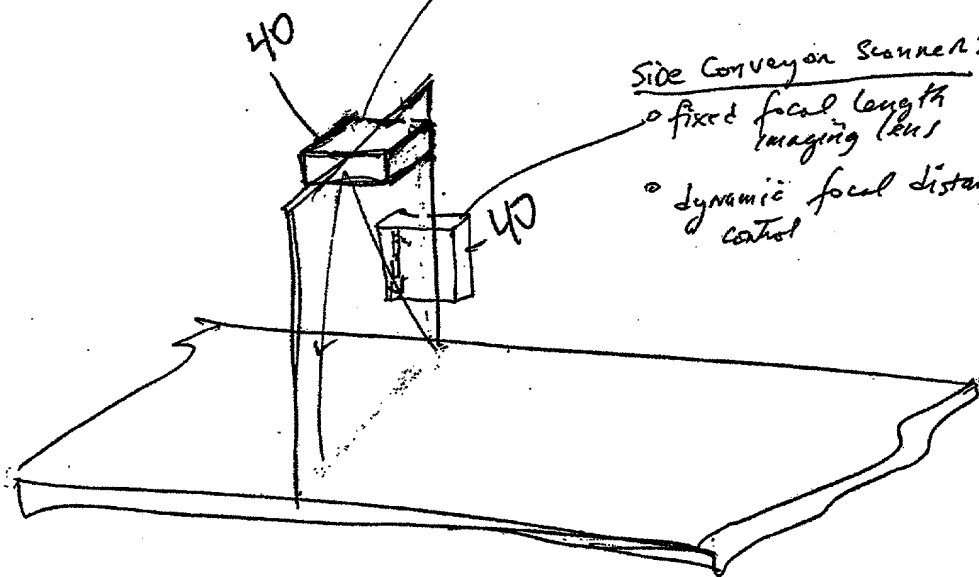 40
Side Conveyor Scanner:
° fixed focal length
imaging lens
40
° dynamic focal distan
control